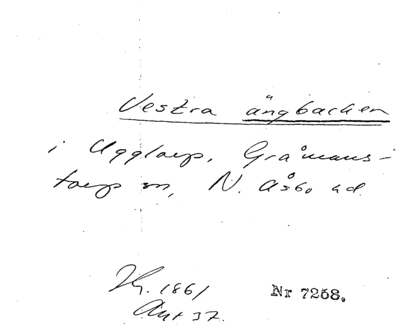 Vestra ängbacken
i Ugglarp, Gråmans-
torp sn, N. Åsbo hd.
1861 Nr 7268.
37.